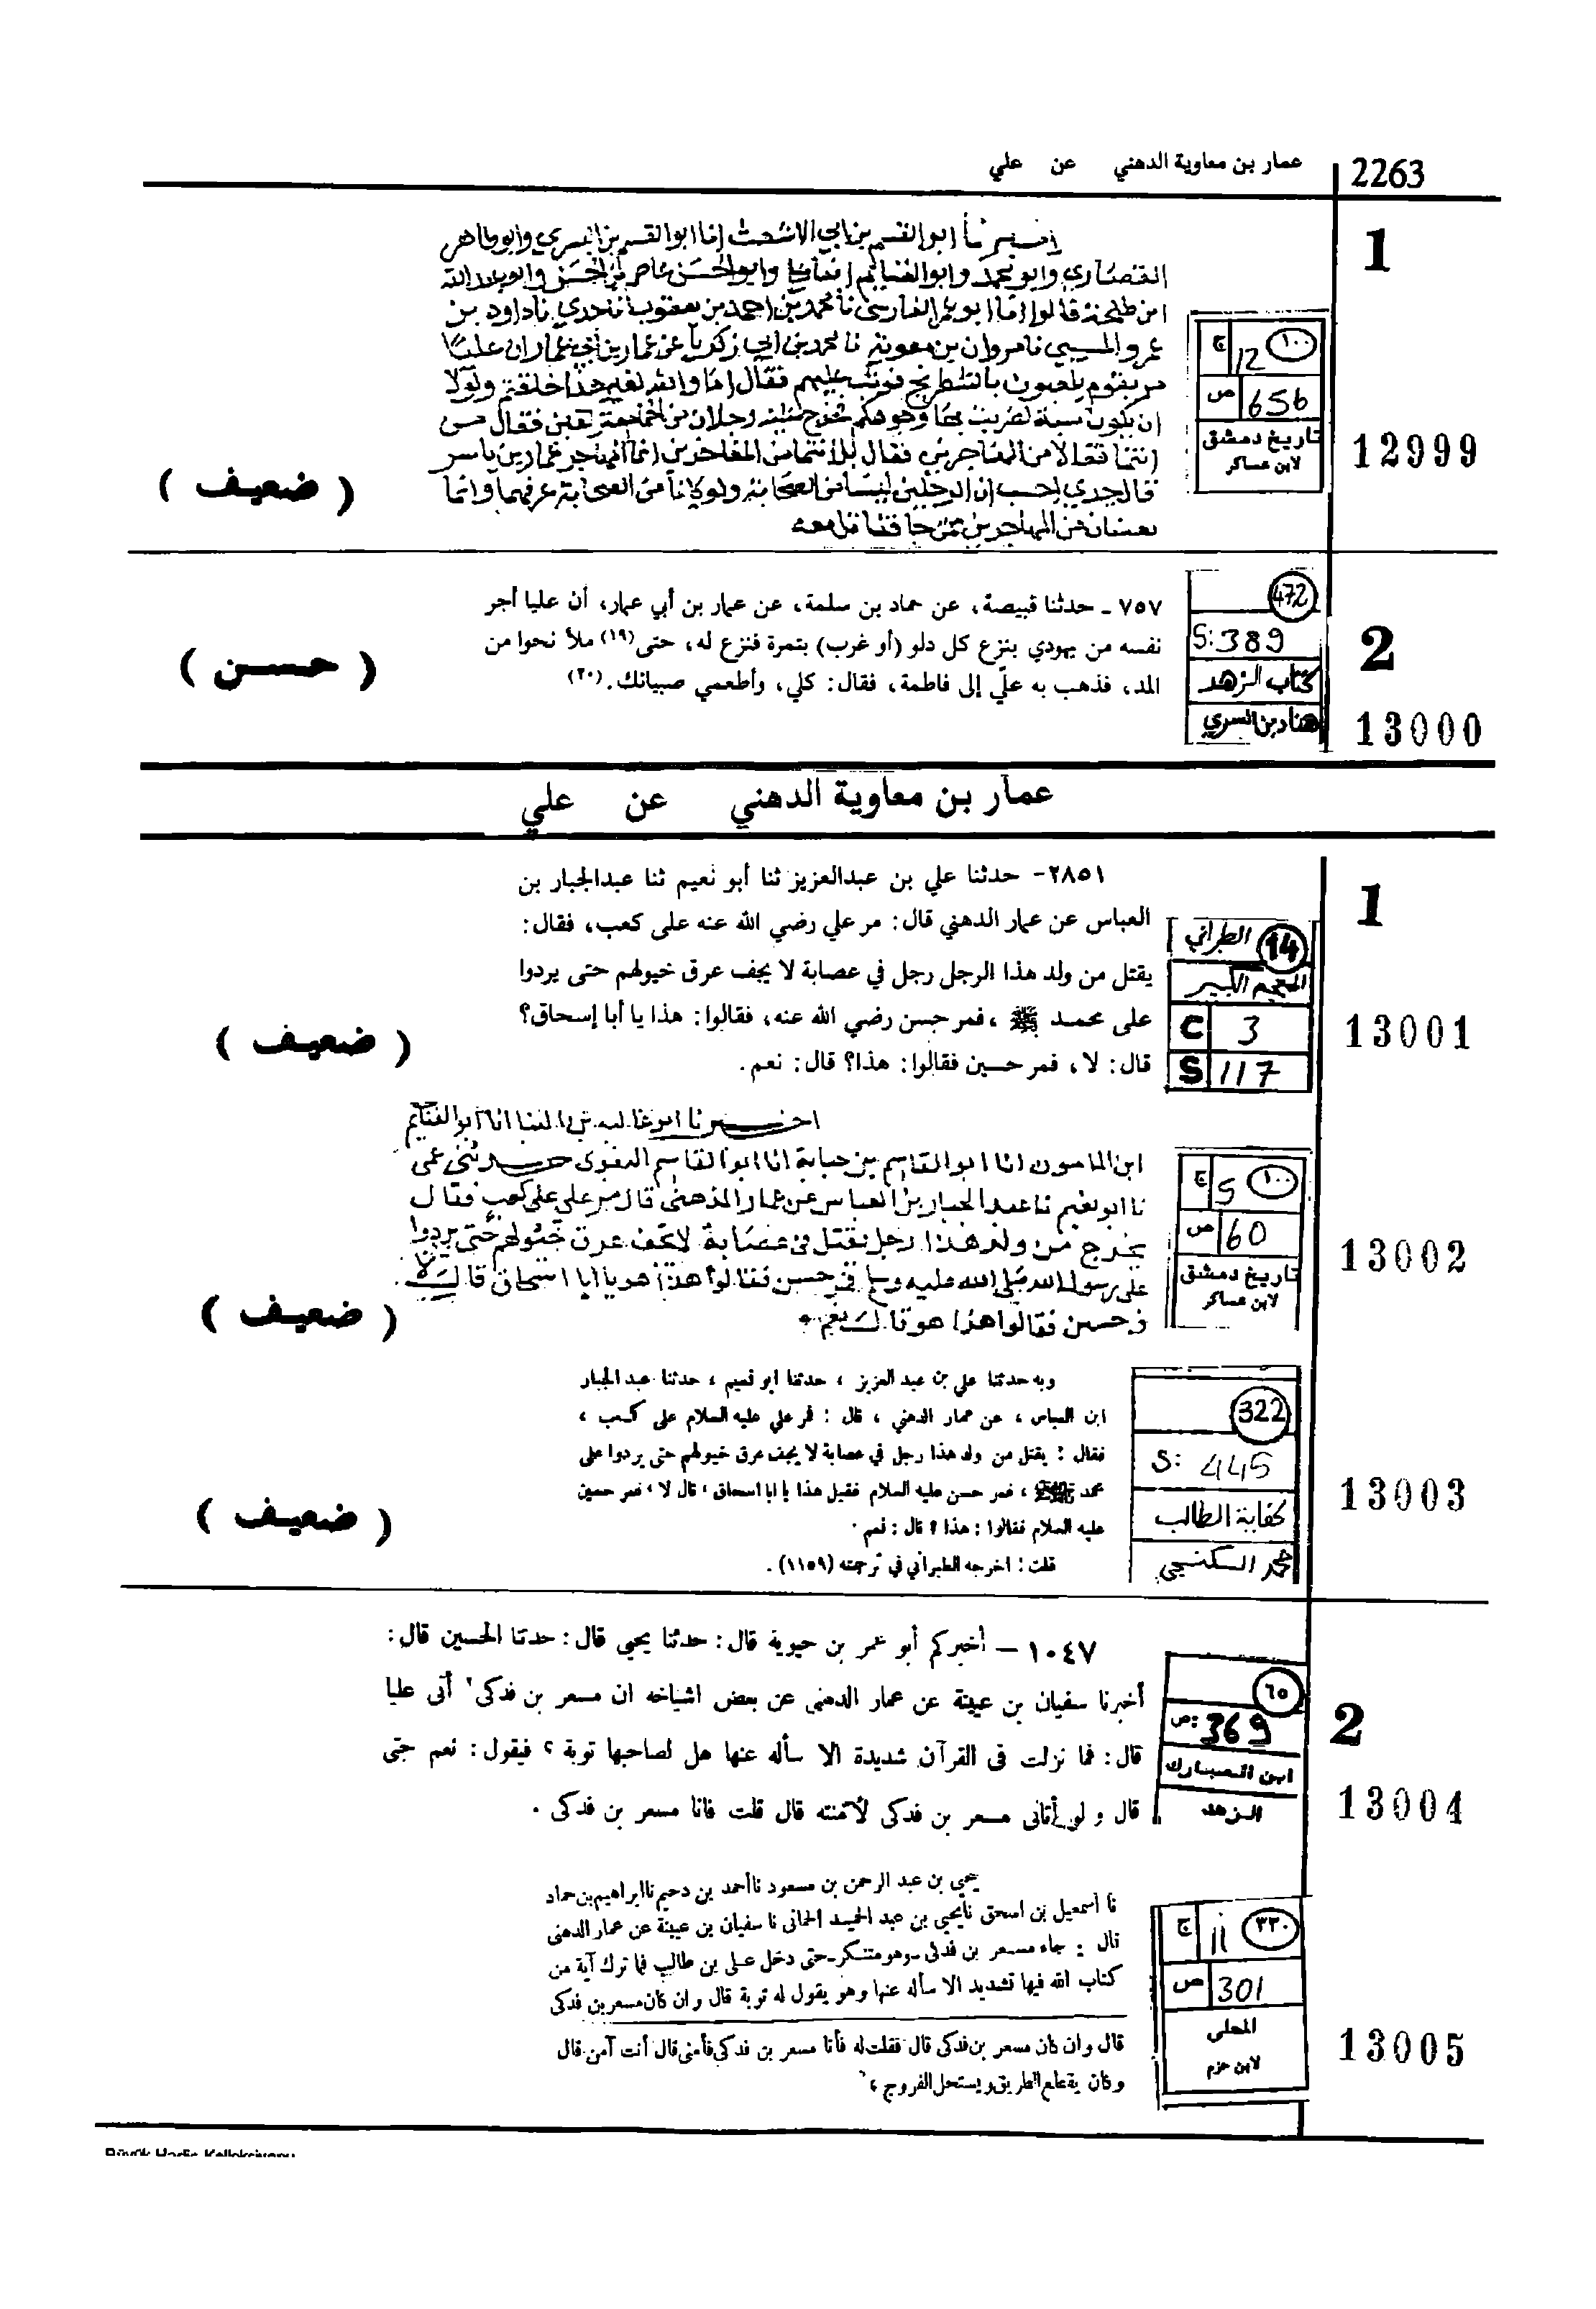 2263 عمار بن معاوية الدهني عن علي
1
اخبرنا ابو القسم بن ابي الاشعث انا ابو القسم بن البسري وابو طاهر
القصاري وابو محمد وابو الغنايم وابو الحسن عاصم بن الحسن وابو عبد الله
ابن طلحة قالوا انا ابو عمر الفارسي نا محمد بن احمد بن يعقوب نا جدي نا داود بن
عمرو المسيبي نا مروان بن معوية نا محمد بن ابي زكريا عن عمار بن ابي عمار ان عليا
مر بقوم يلعبون بالشطرنج فوثب عليهم فقال اما والله لغير هذا خلقتم ولولا
ان يكون سبة لضربت بها وجوهكم رجلان من فقال من
انتما فقالا من المهاجرين فقال انما المهاجر عمار بن ياسر
قال جدي احسب ان الرجلين ليسا من الصحابة ولو كانا من الصحابة عرفهما وانما
يعنيان من المهاجرين
١٠٠ ج 12
ص 656
تاريخ دمشق
لابن عساكر
12999
( ضعيف )
٧٥٧ ـ حدثنا قبيصة، عن حماد بن سلمة، عن عمار بن أبي عمار، أن عليا أجر
نفسه من يهودي بنزع كل دلو (أو غرب) بتمرة فنزع له، حتى(١٩) ملأ نحوا من
المد، فذهب به عليّ إلى فاطمة، فقال: كلي، وأطعمي صبيانك.(٢٠)
472
S:389
كتاب الزهد
هناد بن السري
2
13000
( حسن )
عمار بن معاوية الدهني عن علي
٢٨٥١- حدثنا علي بن عبدالعزيز ثنا أبو نعيم ثنا عبدالجبار بن
العباس عن عمار الدهني قال: مر علي رضي الله عنه على كعب، فقال:
يقتل من ولد هذا الرجل رجل في عصابة لا يجف عرق خيولهم حتى يردوا
على محمد ﷺ، فمر حسن رضي الله عنه، فقالوا: هذا يا أبا إسحاق؟
قال: لا، فمر حسين فقالوا: هذا؟ قال: نعم.
14 الطبراني
المعجم الكبير
C 3
S 117
1
13001
( ضعيف )
اخبرنا ابو غالب بن البنا انا ابو الغنايم
ابن المامون انا ابو القاسم بن حبابة انا ابو القاسم البغوى حدثني عمى
نا ابو نعيم نا عبد الجبار بن العباس عن عمار الدهني قال مر علي على كعب فقال
يخرج من ولد هذا رجل يقتل في عصابة لا يجف عرق خيولهم حتى يردوا
على رسول الله صلى الله عليه وسلم فمر حسن فقالوا هذا هو يا ابا اسحاق قال لا
فمر حسين فقالوا هذا هو قال نعم
١٠٠ ج 5
ص 60
تاريخ دمشق
لابن عساكر
13002
( ضعيف )
وبه حدثنا علي بن عبد العزيز ، حدثنا ابو نعيم ، حدثنا عبد الجبار
ابن العباس ، عن عمار الدهني ، قال : مر علي عليه السلام على كعب ،
فقال : يقتل من ولد هذا رجل في عصابة لا يجف عرق خيولهم حتى يردوا على
محمد ﷺ ، فمر حسن عليه السلام فقيل هذا يا ابا اسحاق ، قال لا ، فمر حسين
عليه السلام فقالوا : هذا ؟ قال : نعم .
قلت : اخرجه الطبراني في ترجمته (١١٥٩) .
322
S: 445
كفاية الطالب
محمد السكنجي
13003
( ضعيف )
١٠٤٧ – أخبركم أبو عمر بن حيوية قال: حدثنا يحيى قال: حدثنا الحسين قال:
أخبرنا سفيان بن عيينة عن عمار الدهنى عن بعض اشياخه ان مسعر بن فدكى أتى عليا
قال: فما نزلت فى القرآن شديدة الا سأله عنها هل لصاحبها توبة ؟ فيقول: نعم حتى
قال و لو أتانى مسعر بن فدكى لأمنته قال قلت فانا مسعر بن فدكى .
٦٥
ص: 369
ابن المبارك
الزهد
2
13004
يحيي بن عبد الرحمن بن مسعود نا أحمد بن دحيم نا ابراهيم بن حماد
نا اسمعيل بن اسحق نا يحيي بن عبد الحميد الحمانى نا سفيان بن عيينة عن عمار الدهنى
قال : جاء مسعر بن فدكى ـ وهو متنكر ـ حتى دخل على بن طالب فما ترك آية من
كتاب الله فيها تشديد الا سأله عنها وهو يقول له توبة قال وان كان مسعر بن فدكى
قال وان كان مسعر بن فدكى قال فقلت له فأنا مسعر بن فدكى فأمنى قال أنت آمن قال
وكان يقطع الطريق ويستحل الفروج ،
٣٣٠ ج 11
ص 301
المحلى
لابن حزم
13005
Büyük Hadis Kolleksiyonu